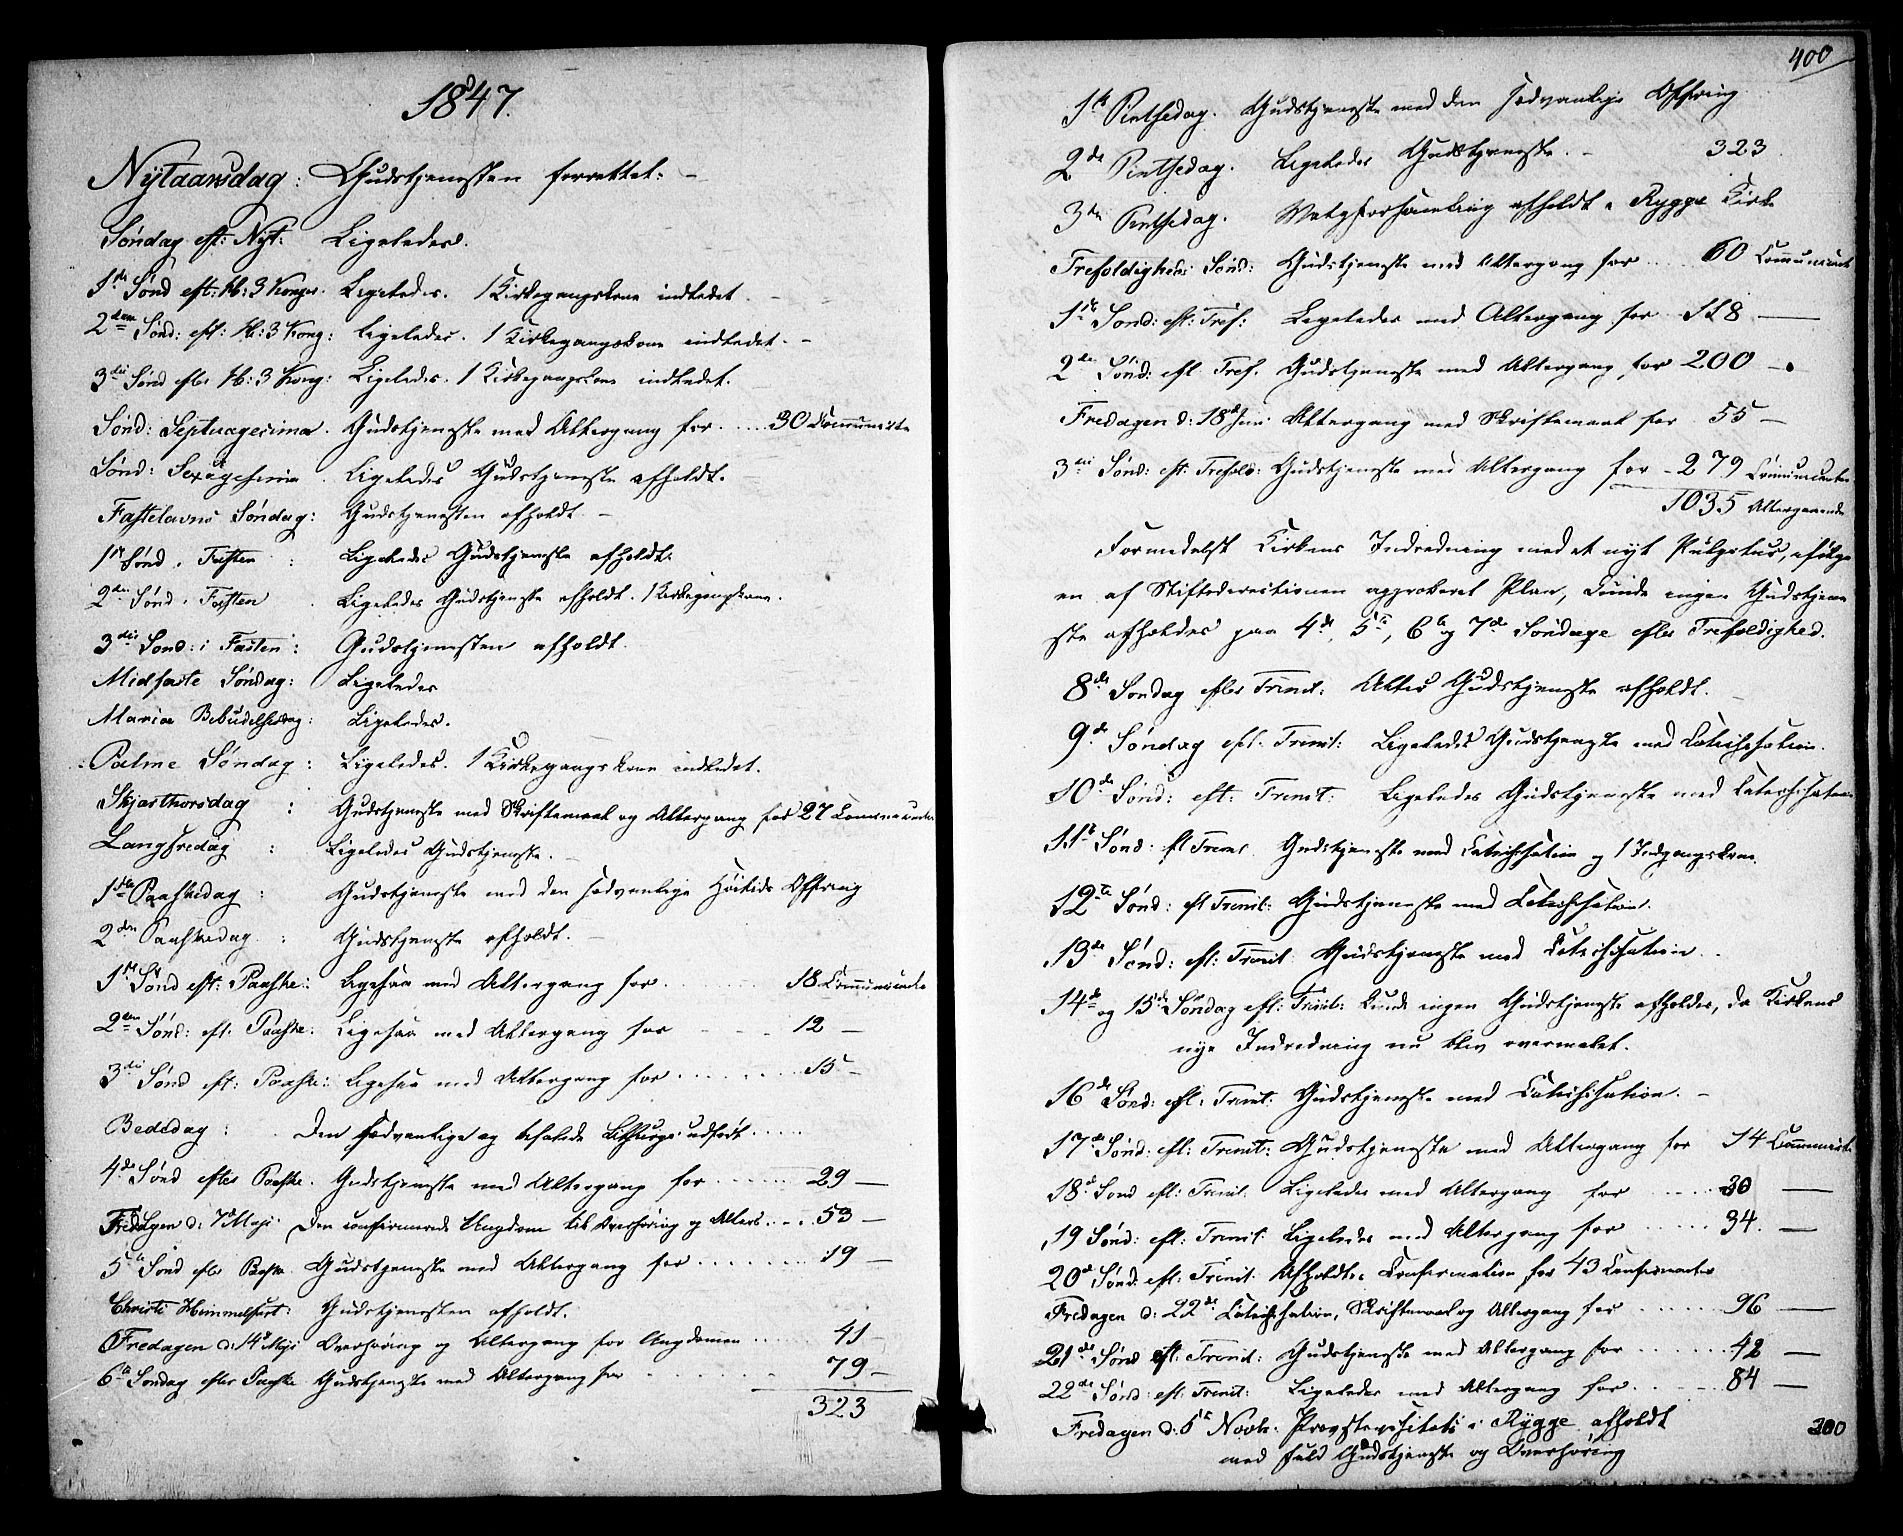 1847.
Nytaarsdag: Gudstjenesten forrettet. -
Søndag eft: Nyt: Ligeledes.
1ste Sønd eft: H: 3 Konger. Ligeledes. 1 Kirkegangskone indledet. -
2den Sønd: eft: H: 3 Kong: Ligeledes. 1 Kirkegangskone indledet. -
3die Sønd efter H: 3 Kong: Ligeledes. 1 Kirkegangskone indledet.
Sønd: Septuagesima. Gudstjeneste med Altergang for .... 30 Communicanter
Sønd: Sexagesima. Ligeledes Gudstjeneste afholdt.
Fastelavns Søndag: Gudstjenesten afholdt. -
1ste Sønd. i Fasten : Ligeledes Gudstjeneste afholdt.
2den Sønd. i Fasten . Ligeledes Gudstjeneste afholdt. 1 Kirkegangskone.
3die Sønd: i Fasten: Gudstjenesten afholdt.
Midfaste Søndag: Ligeledes
Mariæ Bebudelsesdag: Ligeledes.
Palme Søndag: Ligeledes. 1 Kirkegangskone indledet.
Skjærthorsdag : Gudstjeneste med Skriftemaal og Altergang for 27 Communicanter
Langfredag : Ligeledes Gudstjeneste. -
1ste Paaskedag : Gudstjeneste med den sædvanlige Høitids Offring
2den Paaskedag : Gudstjeneste afholdt. -
1ste Sønd eft: Paaske: Ligesaa med Altergang for ...... 18 Communicanter
2den Sønd: eft: Paaske: Ligesaa med Altergang for .... 12 -
3die Sønd eft: Paaske: Ligesaa med Altergang for ...... 15 -
Bededag: . Den sædvanlige og befalede Lithurgi udført .....
4de Sønd efter Paaske. Gudstjeneste med Altergang for ...... 29 -
Fredagen d: 7de Maji. Den confirmerede Ungdom til Overhøring og Alters ... 53 -
5te Sønd efter Paaske Gudstjeneste med Altergang for ....... 19 -
Christi Himmelfart: Gudstjenesten afholdt.
Fredagen d: 14de Maji Overhøring og Altergang for Ungdommen ..... 41 -
6te Søndag efter Paaske Gudstjeneste med Altergang for ...... 79 -
323
400
1ste Pintsedag. Gudstjeneste med den sædvanlige Offring
2den Pintsedag. Ligeledes Gudstjeneste. - 323.
3die Pintsedag. Valgforsamling afholdt i Rygge Kirke
Trefoldigheds Sønd: Gudstjeneste med Altergang for .... 60 Communicant
1ste Sønd: eft: Tref: Ligeledes med Altergang for .. 118 -
2den Sønd: eft Tref. Gudstjeneste med Altergang for 200 -
Fredagen d: 18de Juni Altergang med Skriftemaal for . 55 -
3die Sønd: eft: Trefold: Gudstjeneste med Altergang for - 279 Communicanter
1035 Altergaaende
Formedelst Kirkens Indredning med et nyt Pulpitur, ifølge
en af Stiftsdirectionen approberet Plan, kunde ingen Gudstjene
ste afholdes paa 4de, 5te, 6te og 7de Søndage efter Trefoldighed.
8de Søndag efter Trinit: Atter Gudstjeneste afholdt. -
9de Søndag eft. Trinit: Ligeledes Gudstjeneste med Catechisation.
10de Sønd: eft: Trinit: Ligeledes Gudstjeneste med Catechisation
11te Sønd. eft Trinit. Gudstjeneste med Catechisation og 1 Indgangskone.
12te Sønd: eft Trinit: Gudstjeneste med Catechisation.
13de Sønd: eft: Trinit. Gudstjeneste med Catechisation ..
14de og 15de Søndag eft: Trinit: kunde ingen Gudstjeneste afholdes, da Kirkens
nye Indredning nu blev overmalet.
16de Sønd: eft: Trinit: Gudstjeneste med Catechisation. -
17de Sønd: eft: Trinit: Gudstjeneste med Altergang for 14 Communicant
18de Sønd eft: Trinit. Ligeledes med Altergang for ...... 30 -
19 Sønd: eft: Trinit. Ligeledes med Altergang for ...... 34. -
20de Sønd. eft: Trinit. Afholdtes Confirmation for 43 Confirmanter
Fredagen d: 22de Catechisation, Skriftemaal og Altergang for ...... 96 -
21de Sønd eft: Trinit: Gudstjeneste med Altergang for ...... 42 -
22de Sønd: eft: Trinit: Ligeledes med Altergang for ..... 84 -
Fredagen d: 5te Novbr. Provstevisitats i Rygge afholdt 300
med fuld Gudstjeneste og Overhøring